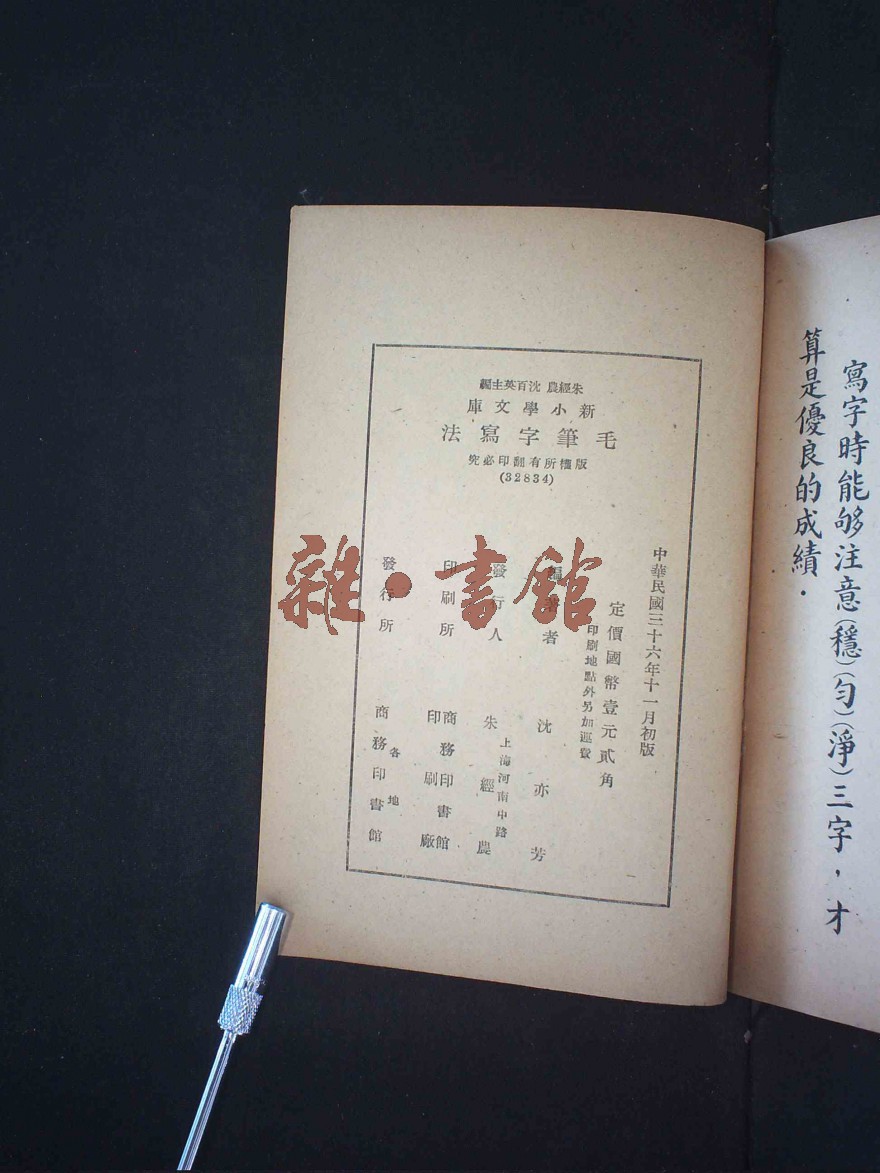 寫字時能够注意(穩)(勻)(淨)三字，才
算是優良的成績．
朱經農 沈百英主編
新小學文庫
毛筆字寫法
版權所有翻印必究
(32834)
中華民國三十六年十一月初版
定價國幣壹元貳角
印刷地點外另加運費
編著者 沈亦芳
發行人 朱經農
上海河南中路
印刷所 商務印書館印刷廠
發行所 各地商務印書館
雜·書館